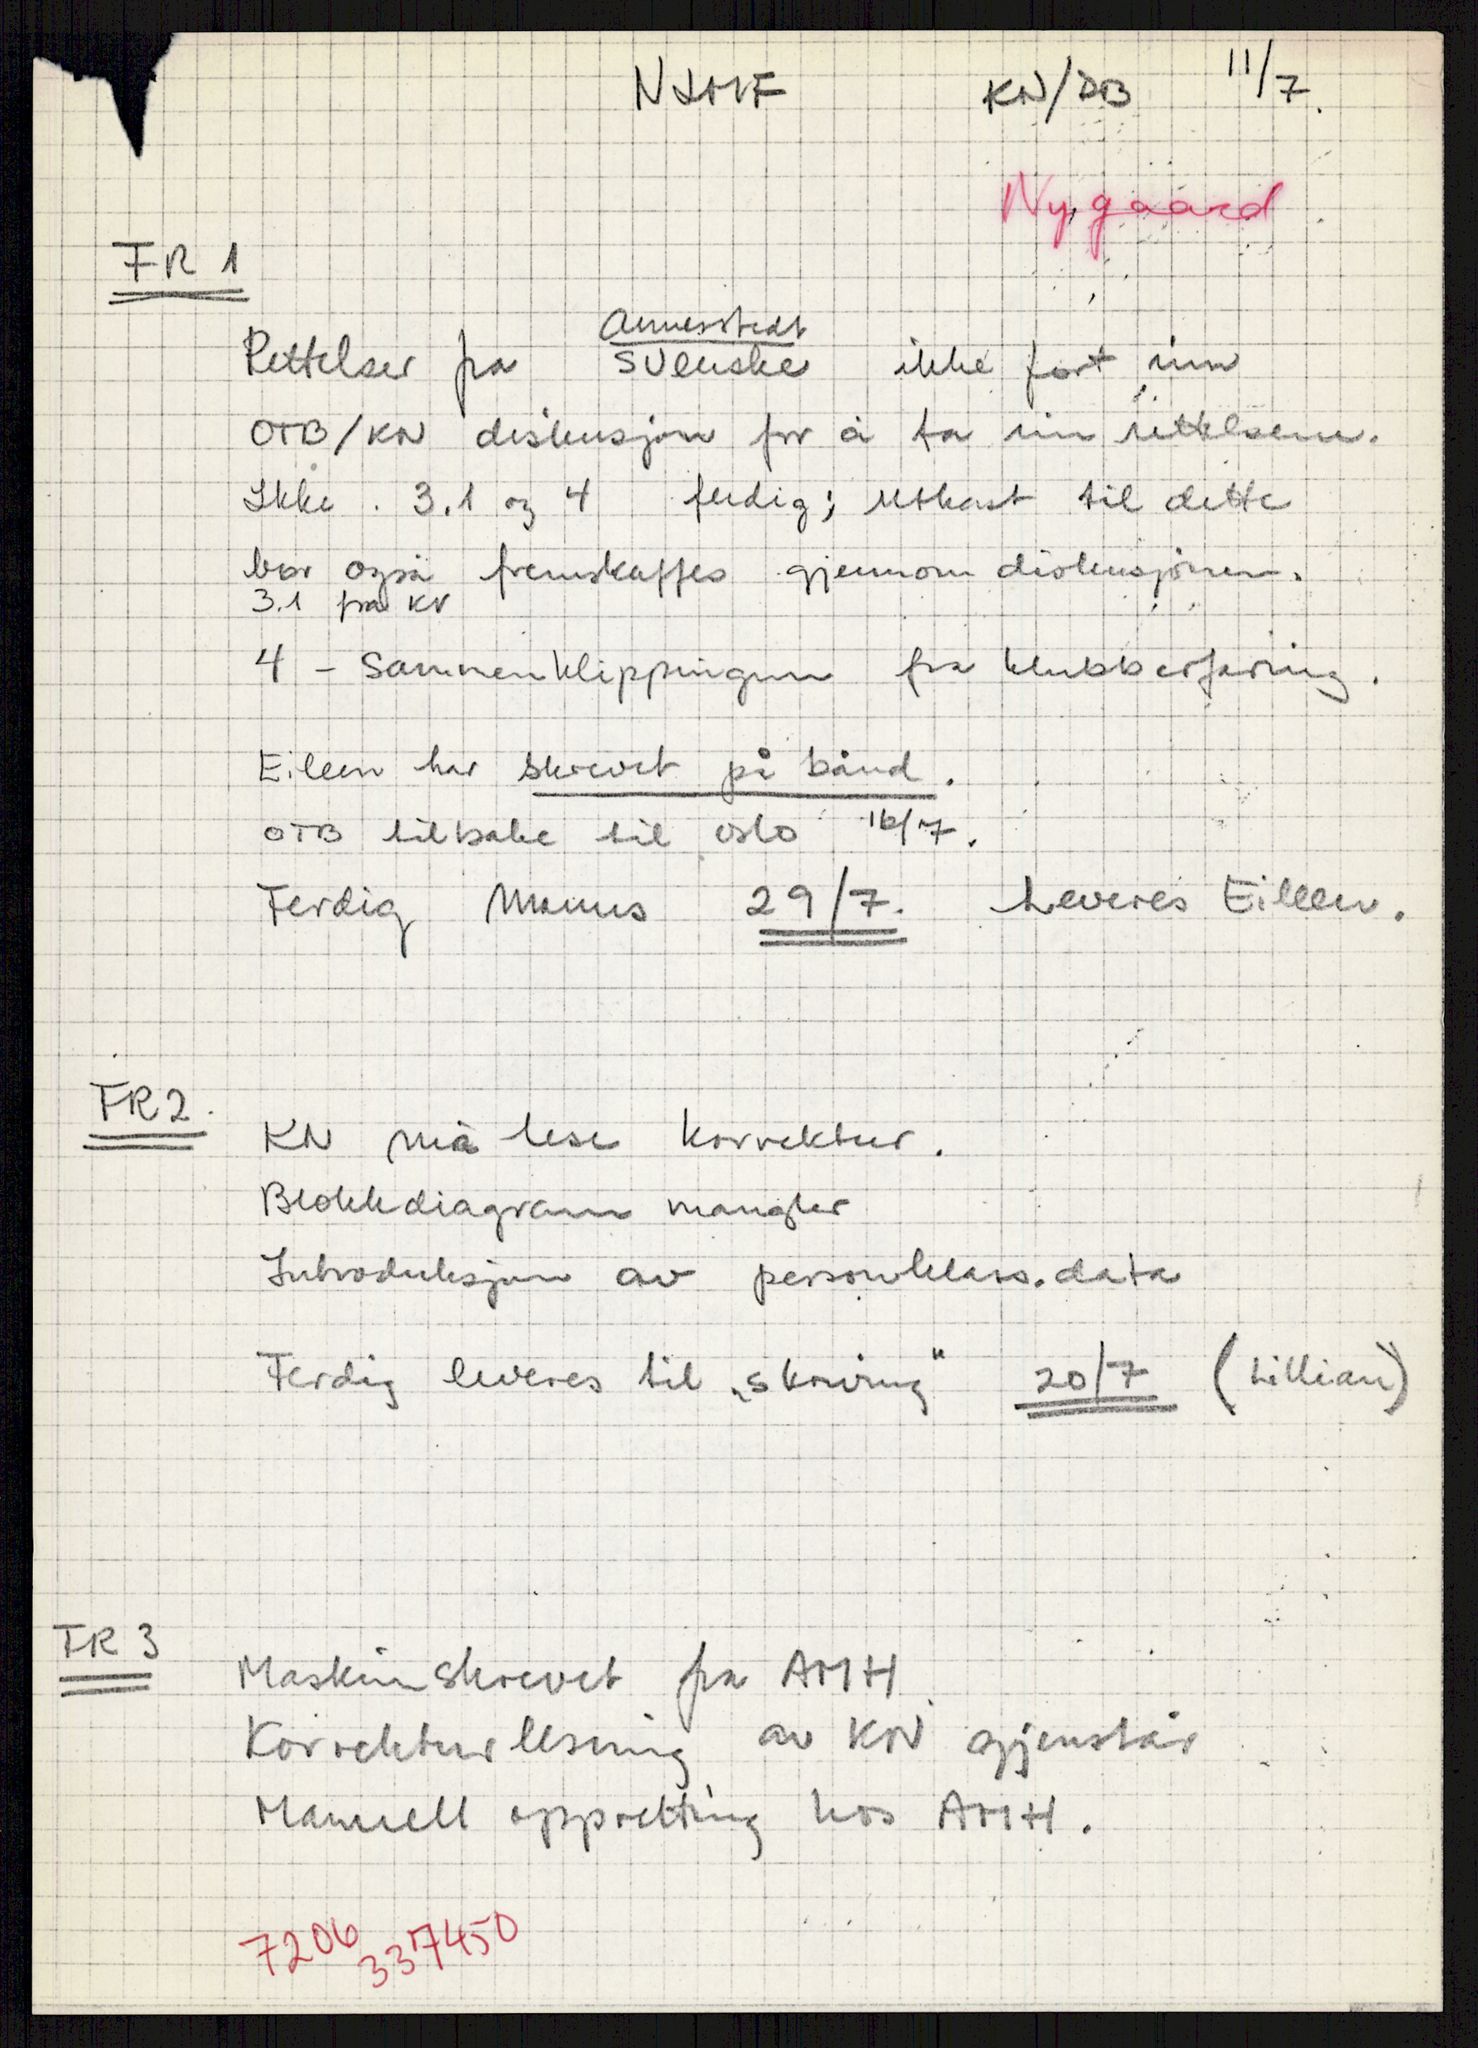 NJMF KN/DB 11/7.
Nygaard
FR 1
Annerstedt
Rettelser fra svenske ikke ført inn
OTB/KN diskusjon for å ta inn rettelsene.
Ikke 3.1 og 4 ferdig; utkast til dette
bør også fremskaffes gjennom diskusjonen.
3.1 fra KN
4 - Sammenklippingen fra klubberfaring.
Eileen har skrevet på bånd.
OTB tilbake til Oslo 16/7.
Ferdig Manus 29/7. Leveres Eileen.
FR 2.
KN må lese korrektur.
Blokkdiagram mangler
Introduksjon av personklass.data
Ferdig leveres til „skriving" 20/7 (Lillian)
FR 3
Maskinskrevet fra AMH
Korrekturlesning av KN gjenstår
Manuell oppretting hos AMH.
7206
337450